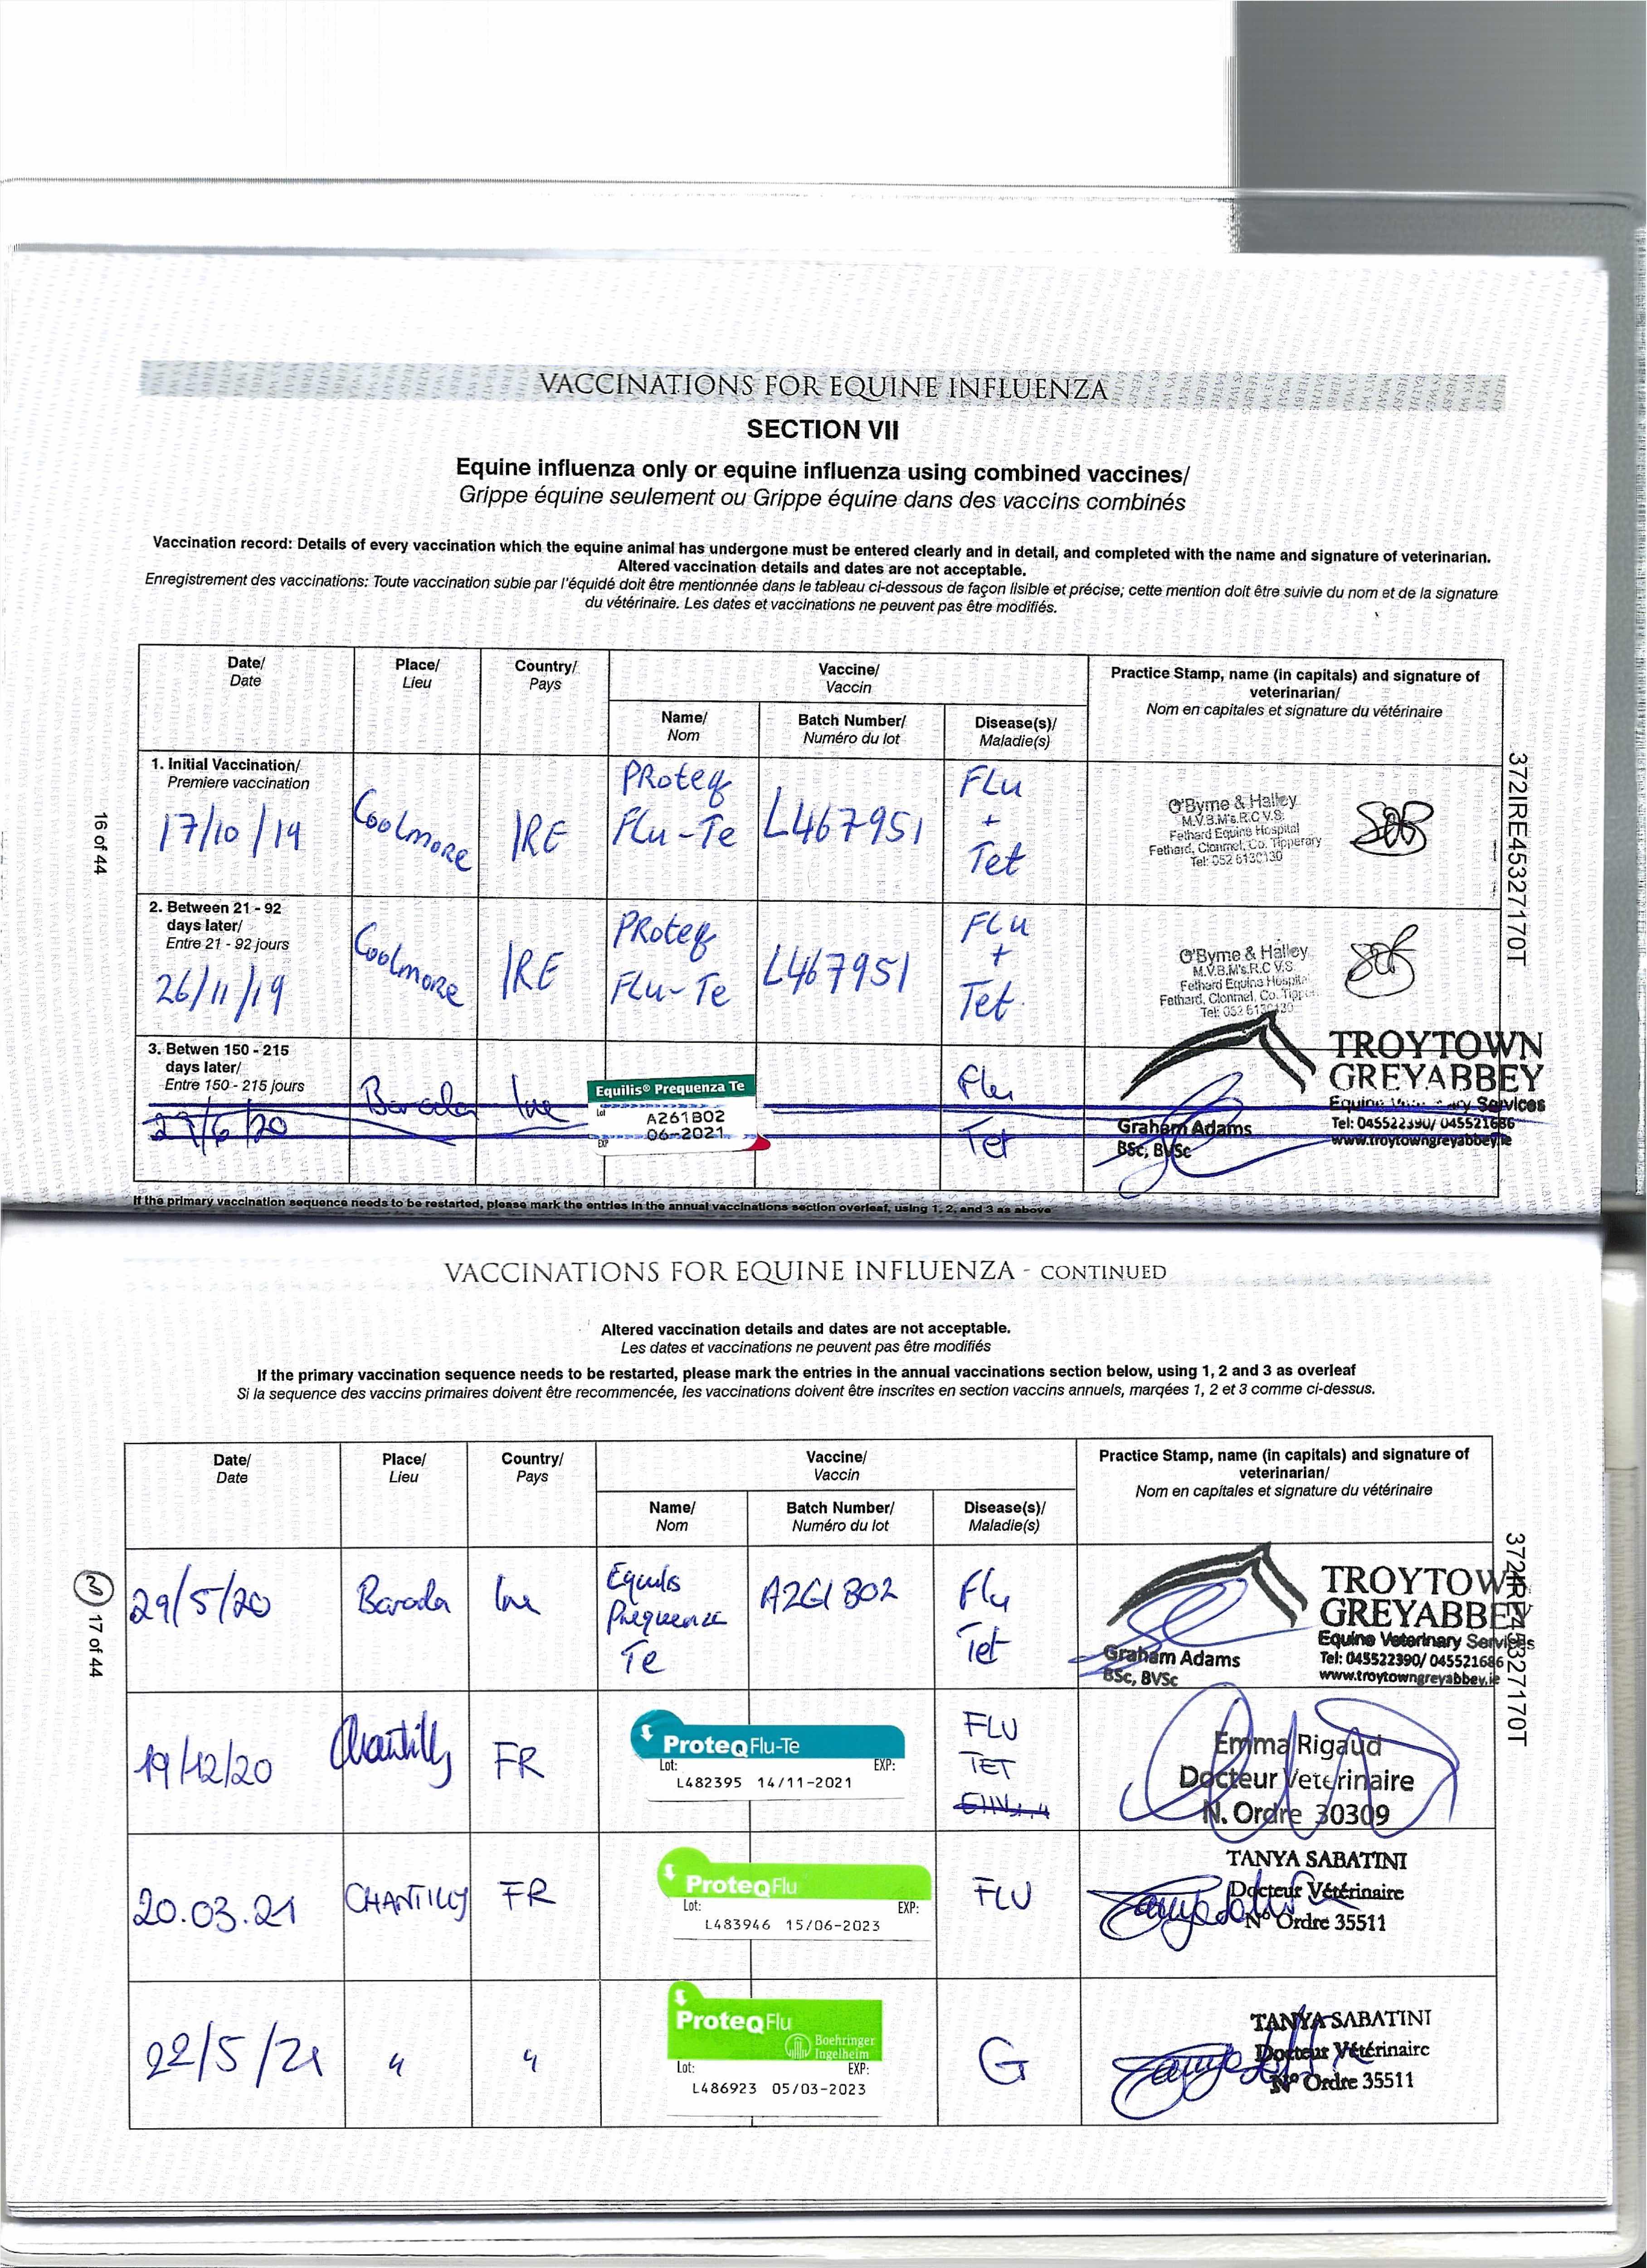 VACCINATIONS FOR EQUINE INFLUENZA
SECTION VII
Equine influenza only or equine influenza using combined vaccines/
Grippe équine seulement ou Grippe équine dans des vaccins combinés
Vaccination record: Details of every vaccination which the equine animal has undergone must be entered clearly and in detail, and completed with the name and signature of veterinarian.
Altered vaccination details and dates are not acceptable.
Enregistrement des vaccinations: Toute vaccination subie par l'équidé doit être mentionnée dans le tableau ci-dessous de façon lisible et précise; cette mention doit être suivie du nom et de la signature
du vétérinaire. Les dates et vaccinations ne peuvent pas être modifiés.
Date/
Date
Place/
Lieu
Country/
Pays
Vaccine/
Vaccin
Name/
Nom
Batch Number/
Numéro du lot
Disease(s)/
Maladie(s)
Practice Stamp, name (in capitals) and signature of
veterinarian/
Nom en capitales et signature du vétérinaire
1. Initial Vaccination/
Premiere vaccination
17/10/19
Coolmore
IRE
PRoteq
FLu-Te
L467951
FLu
+
Tet
O'Byrne & Halley
M.V.B.M's.R.C.V.S.
Fethard Equine Hospital
Fethard, Clonmel, Co. Tipperary
Tel: 052 6130130
2. Between 21 - 92
days later/
Entre 21 - 92 jours
26/11/19
Coolmore
IRE
PRoteq
FLu-Te
L467951
FLu
+
Tet
O'Byrne & Halley
M.V.B.M's.R.C.V.S.
Fethard Equine Hospital
Fethard, Clonmel, Co. Tipper
Tel: 052 6130130
3. Betwen 150 - 215
days later/
Entre 150 - 215 jours
Baroda
Ire
Equilis® Prequenza Te
Lot
A261B02
EXP
06-2021
Flu
Tet
TROYTOWN
GREYABBEY
Equine Services
Tel: 045522390/ 045521686
www.troytowngreyabbey.ie
Graham Adams
BSc, BVSc
If the primary vaccination sequence needs to be restarted, please mark the entries in the annual vaccinations section overleaf, using 1, 2, and 3 as above
16 of 44
372IRE45327170T
VACCINATIONS FOR EQUINE INFLUENZA - CONTINUED
Altered vaccination details and dates are not acceptable.
Les dates et vaccinations ne peuvent pas être modifiés
If the primary vaccination sequence needs to be restarted, please mark the entries in the annual vaccinations section below, using 1, 2 and 3 as overleaf
Si la sequence des vaccins primaires doivent être recommencée, les vaccinations doivent être inscrites en section vaccins annuels, marqées 1, 2 et 3 comme ci-dessus.
Date/
Date
Place/
Lieu
Country/
Pays
Vaccine/
Vaccin
Name/
Nom
Batch Number/
Numéro du lot
Disease(s)/
Maladie(s)
Practice Stamp, name (in capitals) and signature of
veterinarian/
Nom en capitales et signature du vétérinaire
3
29/5/20
Baroda
Ire
Equilis
Prequenza
Te
A261B02
Flu
Tet
TROYTOW
GREYABBEY
Equine Veterinary Services
Tel: 045522390/ 045521686
www.troytowngreyabbey.ie
Graham Adams
BSc, BVSc
19/12/20
Chantilly
FR
ProteqFlu-Te
Lot: EXP:
L482395 14/11-2021
FLU
TET
Emma Rigaud
Docteur Veterinaire
N. Ordre 30309
20.03.21
CHANTILLY
FR
ProteqFlu
Lot: EXP:
L483946 15/06-2023
FLU
TANYA SABATINI
Docteur Vétérinaire
N° Ordre 35511
22/5/21
"
"
ProteqFlu
Boehringer
Ingelheim
Lot: EXP:
L486923 05/03-2023
G
TANYA SABATINI
Docteur Vétérinaire
N° Ordre 35511
17 of 44
372IRE45327170T